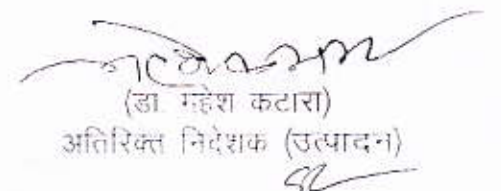 (डा. महेश कटारा)
अतिरिक्त निदेशक (उत्पादन)